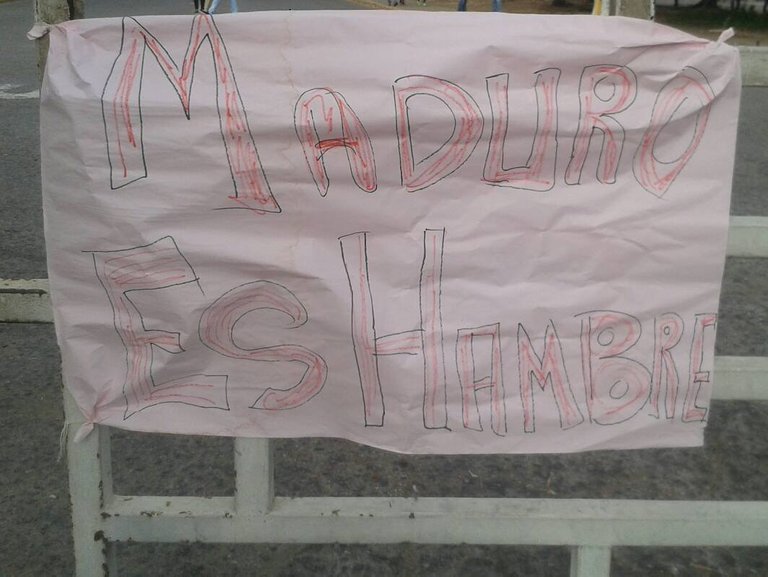 MADURO
ES HAMBRE